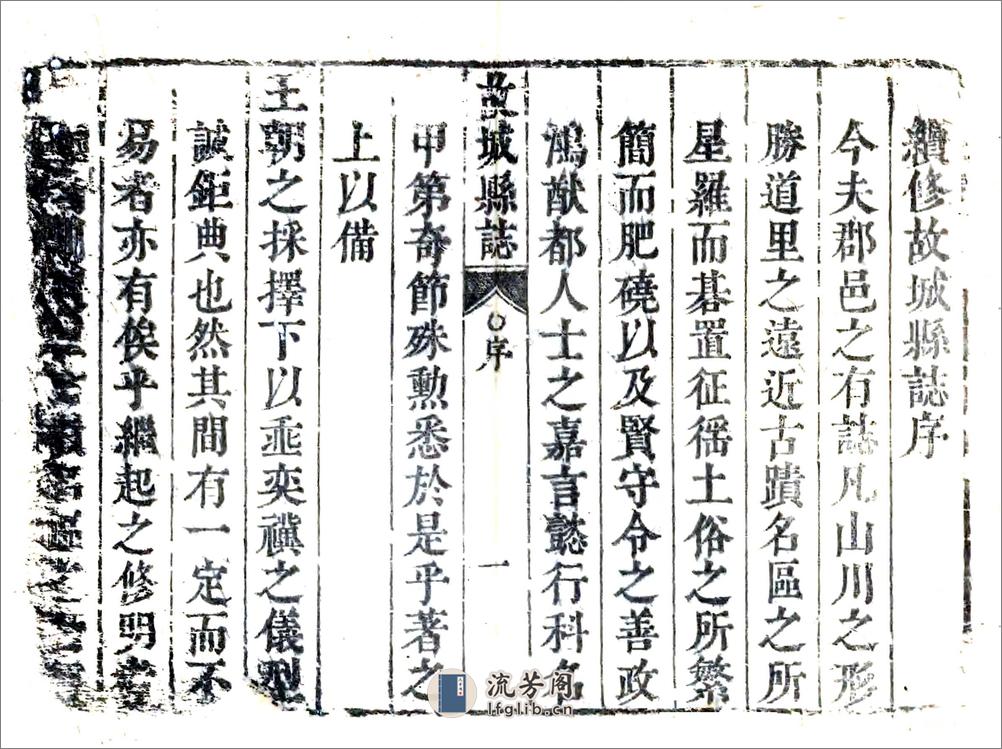 續修故城縣誌序
今夫郡邑之有誌凡山川之形
勝道里之遠近古蹟名區之所
星羅而碁置征徭土俗之所繁
簡而肥磽以及賢守令之善政
鴻猷都人士之嘉言懿行科名
故城縣誌 〇序 一
甲第奇節殊勲悉於是乎著之
上以備
王朝之採擇下以垂奕禩之儀型
誠鉅典也然其間有一定而不
易者亦有俟乎繼起之修明者
流芳阁
lfglib.cn